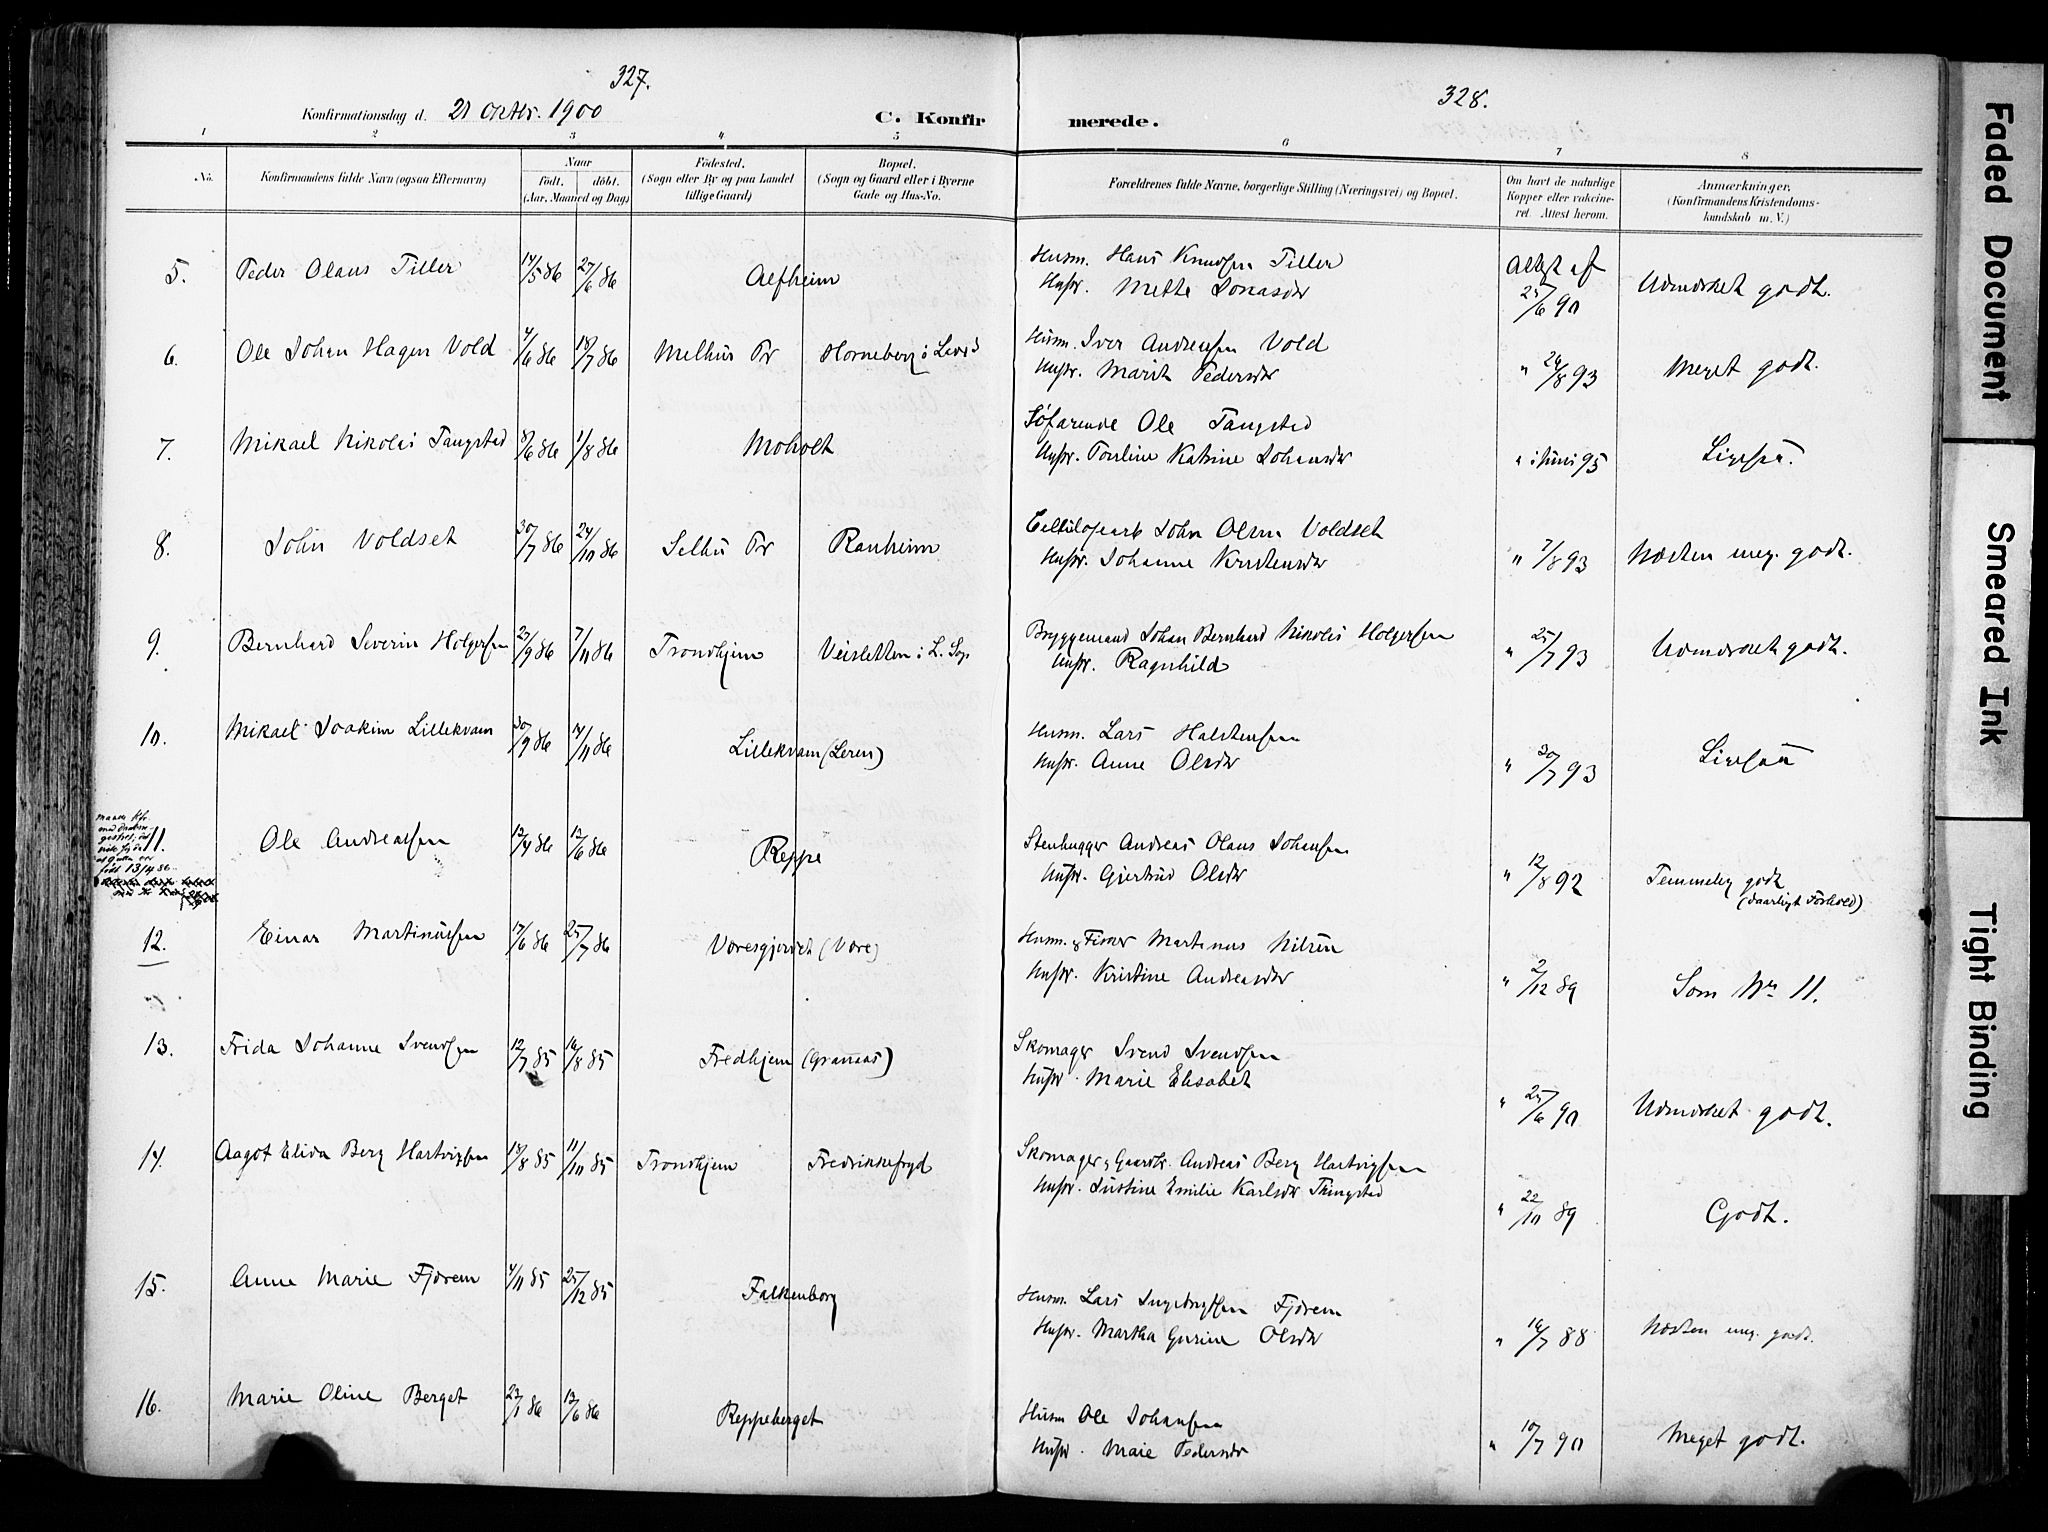 327.
Konfirmationsdag d. 21 Oktbr. 1900
C. Konfir
1 2 3 4 5
No.
Konfirmandens fulde Navn (ogsaa Efternavn)
Naar
født. døbt.
(Aar, Maaned og Dag)
Fødested.
(Sogn eller By og paa Landet
tillige Gaard)
Bopæl.
(Sogn og Gaard eller i Byerne
Gade og Hus-No.
328.
merede.
6 7 8
Forældrenes fulde Navne, borgerlige Stilling (Næringsvei) og Bopæl.
Om havt de naturlige
Kopper eller vakcine-
ret. Attest herom.
Anmærkninger.
(Konfirmandens Kristendoms-
kundskab m. V.)
5. Peder Olaus Tiller 14/5 86 27/6 86 Alfheim
Husm. Hans Knudsen Tiller
Hustr. Mette Jonasdr
Attest af
25/6 90 Udmærket godt.
6. Ole Johan Hagen Vold 4/6 86 18/7 86 Melhus Pr Horneberg i
Husm. Iver Andreassen Vold
Hustr. Marit Pedersdr
" 24/8 93 Meget godt.
7. Mikael Nikolai Tangstad 8/6 86 1/8 86 Moholt
Søfarende Ole Tangstad
Hustr. Pauline Katrine Johansdr
" i Juni 95 Ligesaa.
8. John Voldset 30/7 86 24/10 86 Selbu Pr Ranheim
John Olsen Voldset
Hustr. Johanne Kristensdr
" 7/8 93 Næsten meg. godt.
9. Bernhard Severin Holgersen 27/9 86 7/11 86 Trondhjem Veisletten i L. Sogn
Bryggemand Johan Bernhard Nikolai Holgersen
Hustr. Ragnhild
" 25/7 93 Udmærket godt.
10. Mikael Joakim Lillekvam 30/9 86 14/11 86 Lillekvam (Leren)
Husm. Lars Halstensen
Hustr. Anne Olsdr
" 30/7 93 Ligesaa
født 13/4 86
11. Ole Andreassen 12/4 86 13/6 86 Reppe
Stenhugger Andreas Olaus Johansen
Hustr. Gjertrud Olsdr
" 12/8 92 Temmelig godt
(daarligt Forhold)
12. Einar Martinussen 17/6 86 25/7 86 Væresgjerdet (Være)
Husm. & Fisker Martinus Nilsen
Hustr. Kristine Andreasdr
" 2/12 89 Som No 11.
13. Frida Johanne Svendsen 12/7 85 16/8 85 Fredhjem (Granaas)
Skomager Svend Svendsen
Hustr. Marie Elisabet
" 25/6 90 Udmærket godt.
14. Aagot Elida Berg Hartvigsen 17/8 85 11/10 85 Trondhjem Fredrikkefryd
Skomager, Gaardbr. Andreas Berg Hartvigsen
Hustr. Justine Emilie Karlsdr Thingstad
" 22/10 89 Godt.
15. Anne Marie Fjærem 4/11 85 25/12 85 Falkenborg
Husm. Lars Ingebrigtsen Fjærem
Hustr. Martha Gurine Olsdr
" 16/7 88 Næsten meg. godt.
16. Marie Oline Berget 23/1 86 13/6 86 Reppeberget
Husm Ole Johansen
Hustr. Marie Pedersdr
" 10/7 90 Meget godt.
Faded Document
Smeared Ink
Tight Binding